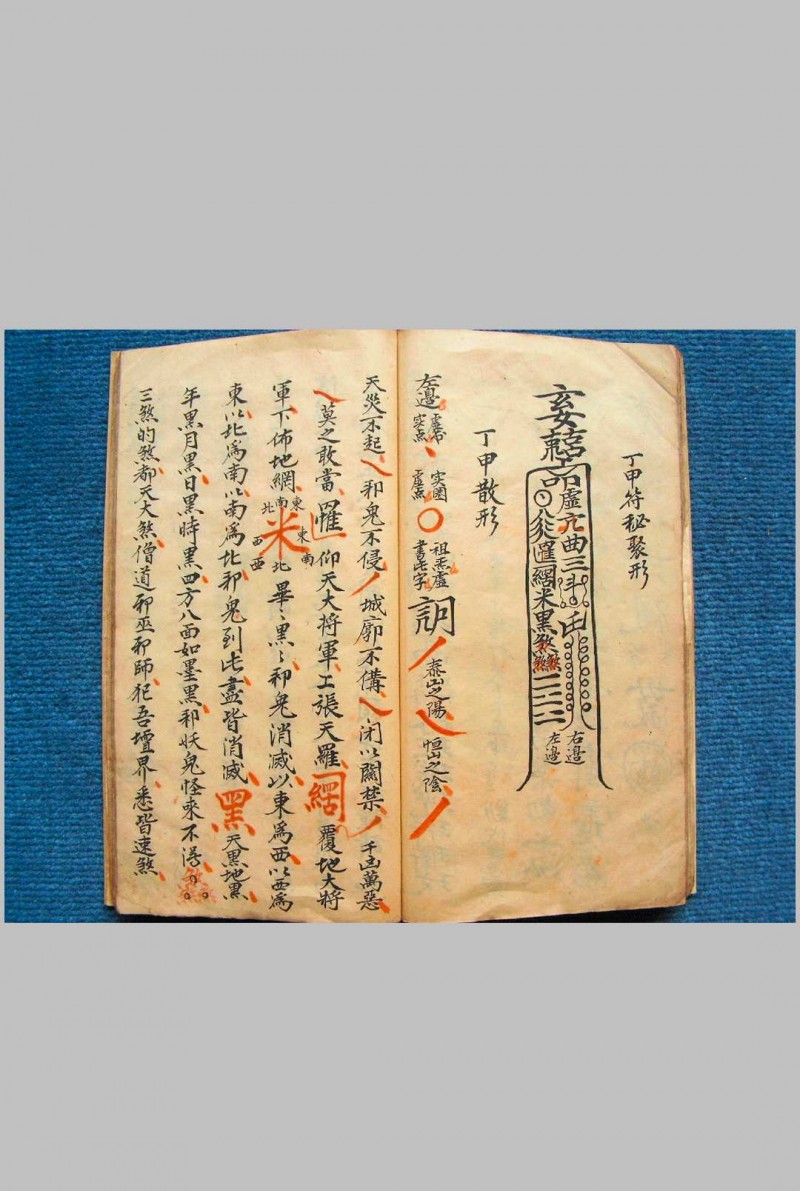 丁甲符秘聚形
虛六曲三
匯網米黑煞
右邊
左邊
丁甲散形
左邊
實圈
虛点
○
祖炁虛
書字
詞
泰山之陽
恒山之陰
天災不起邪鬼不侵城廓不備閉以關禁千凶萬惡
莫之敢當羅仰天大將軍工張天羅網覆地大將
軍下佈地網米東南北東南北西西畢々黑々邪鬼消滅以東為西以西為
東以北為南以南為北邪鬼到此盡皆消滅黑天黑地黑
年黑月黑日黑時黑四方八面如墨黑邪妖鬼怪來不得煞
三煞的煞都天大煞僧道邪巫邪師犯吾壇界悉皆速煞